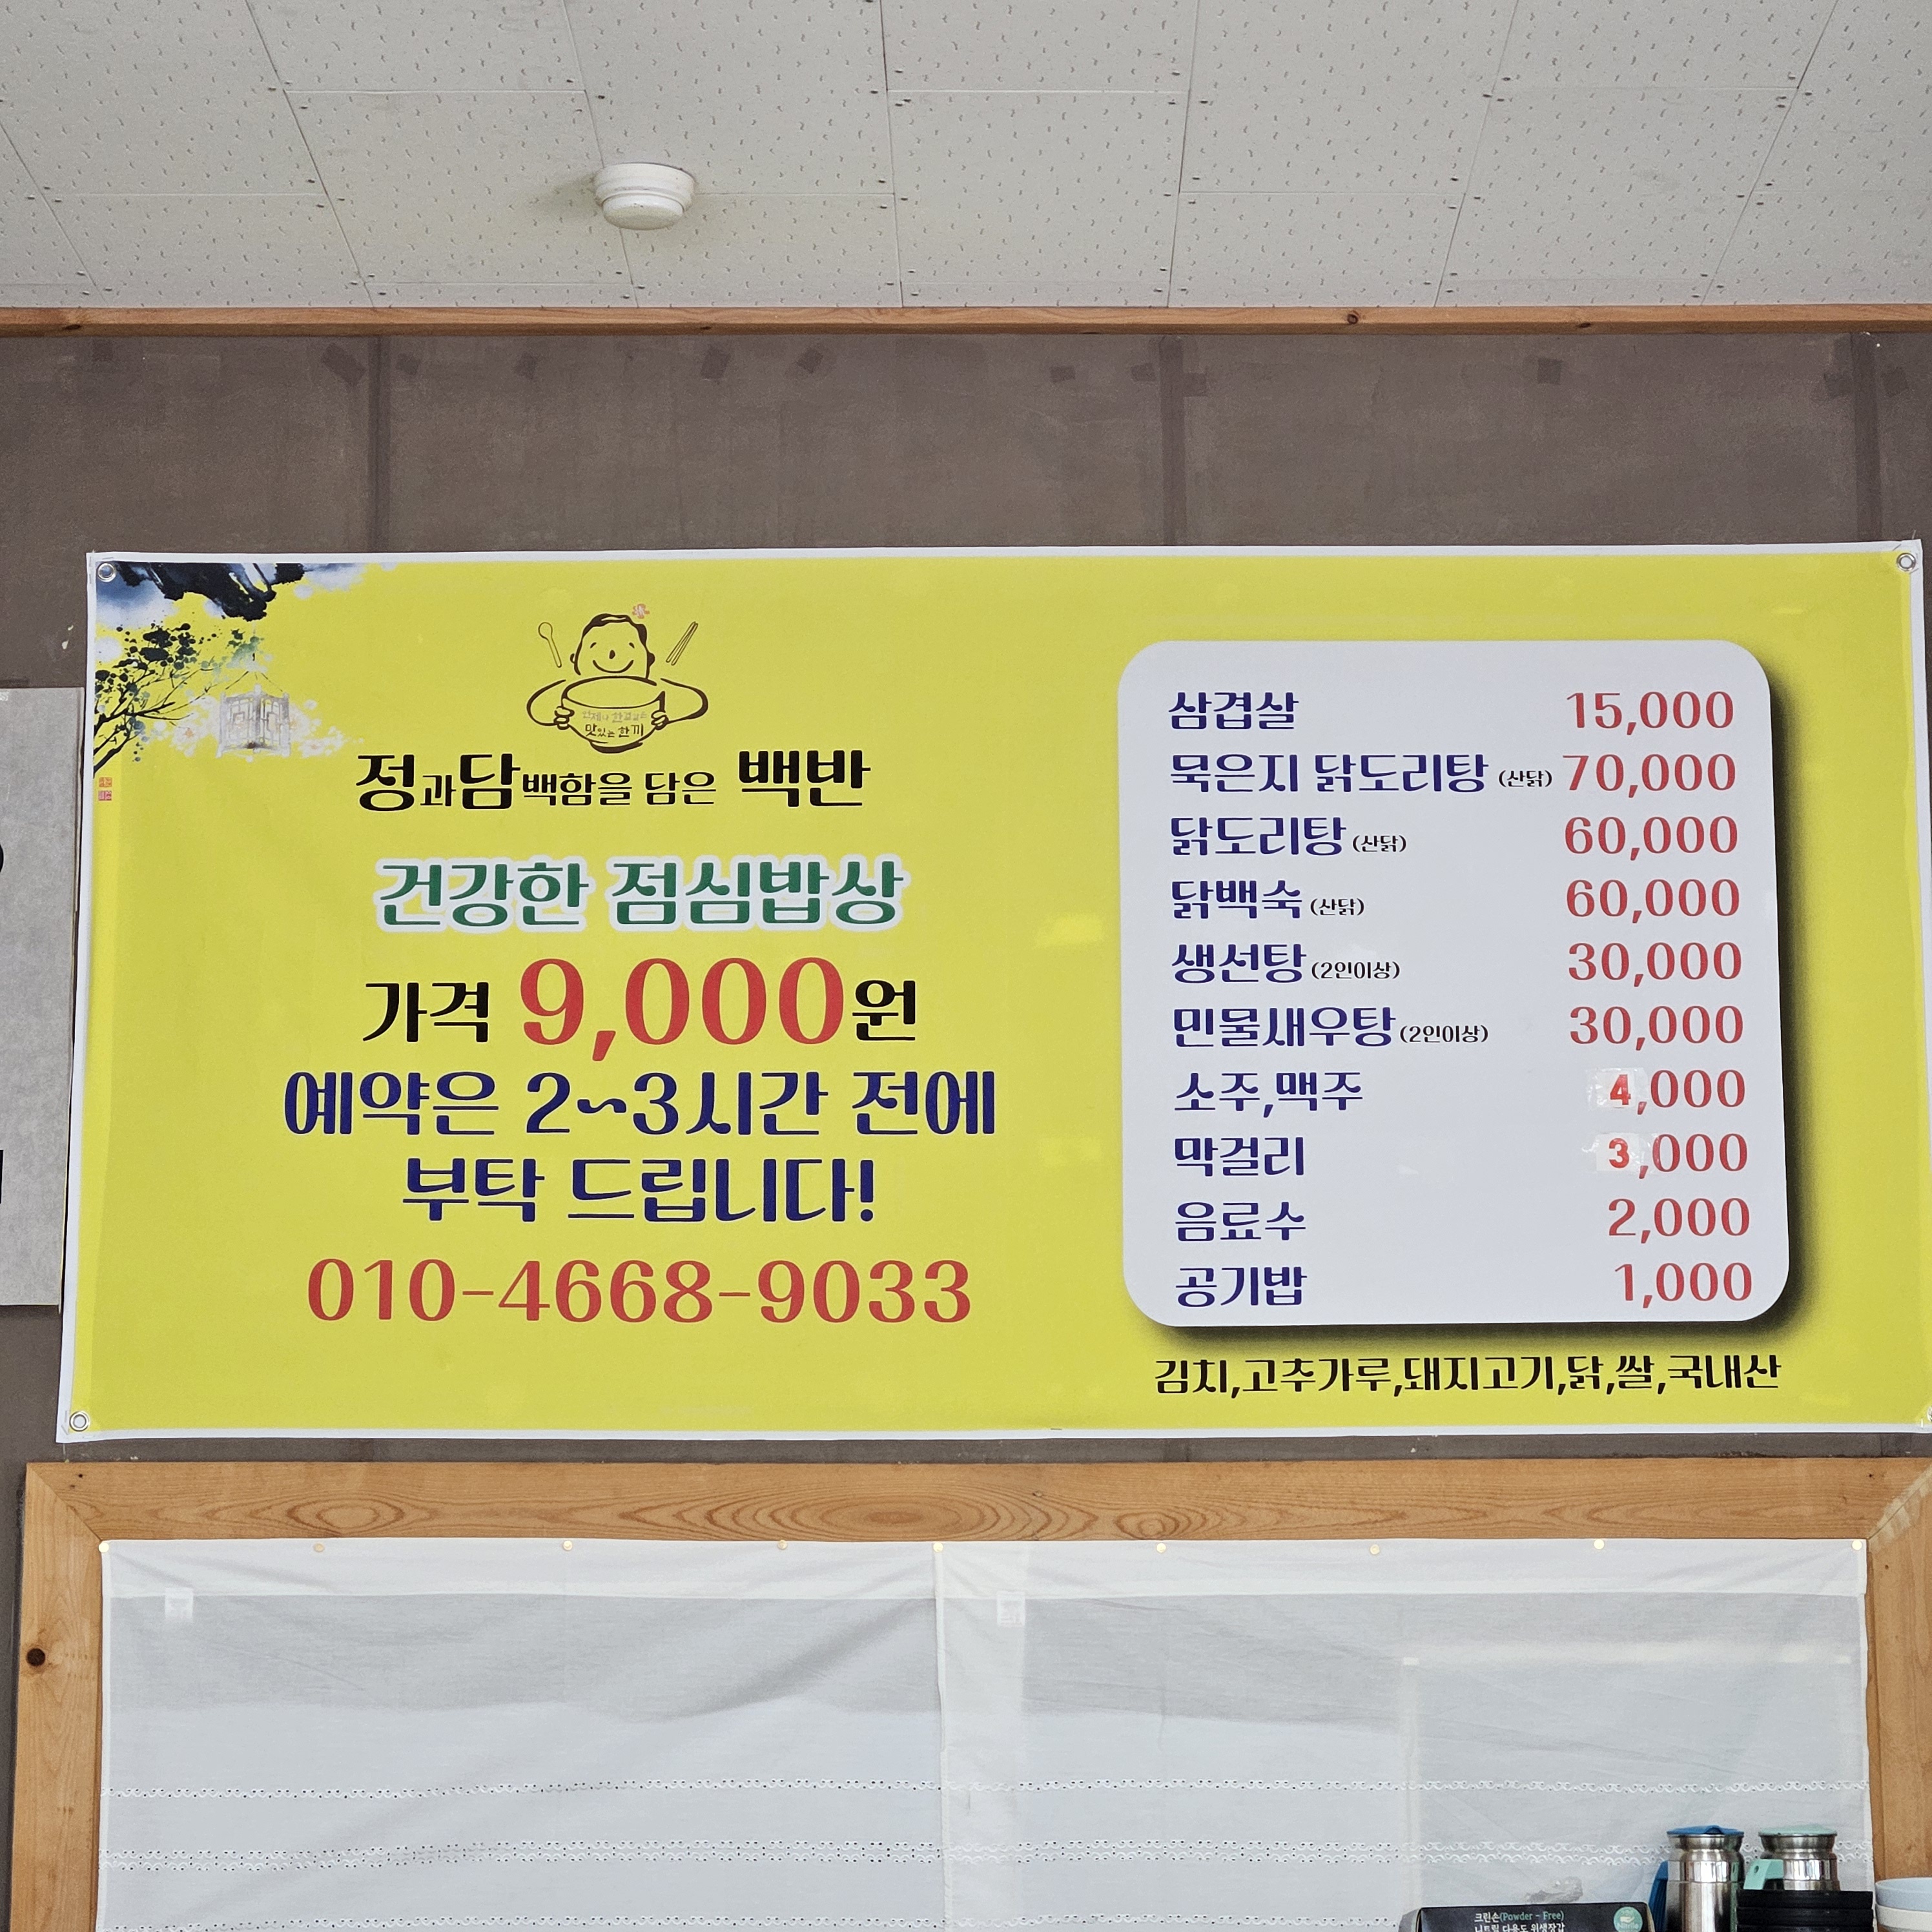 언제나 한결같은
맛있는 한끼
정과담백함을 담은 백반
건강한 점심밥상
가격 9,000원
예약은 2~3시간 전에
부탁 드립니다!
010-4668-9033
삼겹살 15,000
묵은지 닭도리탕 (산닭) 70,000
닭도리탕 (산닭) 60,000
닭백숙 (산닭) 60,000
생선탕 (2인이상) 30,000
민물새우탕 (2인이상) 30,000
소주,맥주 4,000
막걸리 3,000
음료수 2,000
공기밥 1,000
김치,고추가루,돼지고기,닭,쌀,국내산
크린손(Powder - Free)
니트릴 다용도 위생장갑